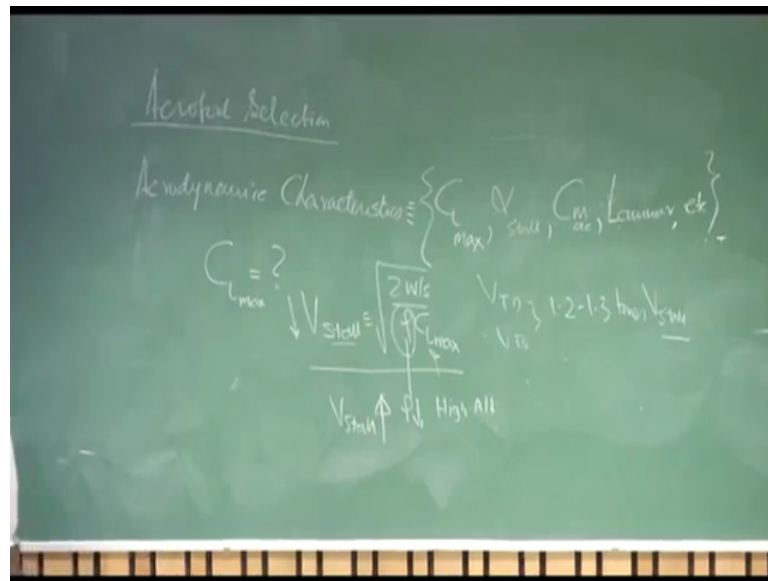 Aerofoil Selection
Aerodynamic Characteristics ≡ { C_L max, α stall, C_m ac, Laminar, etc }
C_L max = ?
↓ V_Stall ≡ √(2 W/S / ρ C_L max)
V_TD } 1.2-1.3 times V_Stall
V_To
V_Stall ↑ ρ↓ High Alt